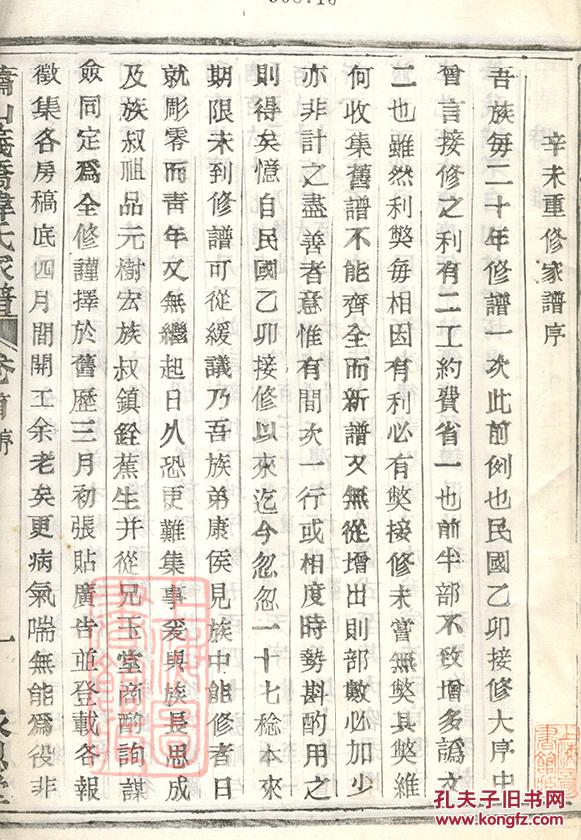 辛未重修家譜序
吾族每二十年修譜一次此前例也民國乙卯接修大序中
曾言接修之利有二工約費省一也前半部不致增多譌文
二也雖然利獘每相因有利必有獘接修未嘗無獘其獘維
何收集舊譜不能齊全而新譜又無從增出則部數必加少
亦非計之盡善者意惟有間次一行或相度時勢斟酌用之
則得矣憶自民國乙卯接修以來迄今忽忽一十七稔本來
期限未到修譜可從緩議乃吾族弟康侯見族中能修者日
就彫零而靑年又無繼起日久恐更難集事爰與族長思成
及族叔祖品元樹宏族叔鎮銓蕉生并從兄玉堂商酌詢謀
僉同定爲全修謹擇於舊歷三月初張貼廣告並登載各報
徵集各房稿底四月間開工余老矣更病氣喘無能爲役非
蕭山義橋韓氏家譜 卷首 序 一
孔夫子旧书网
www.kongfz.com